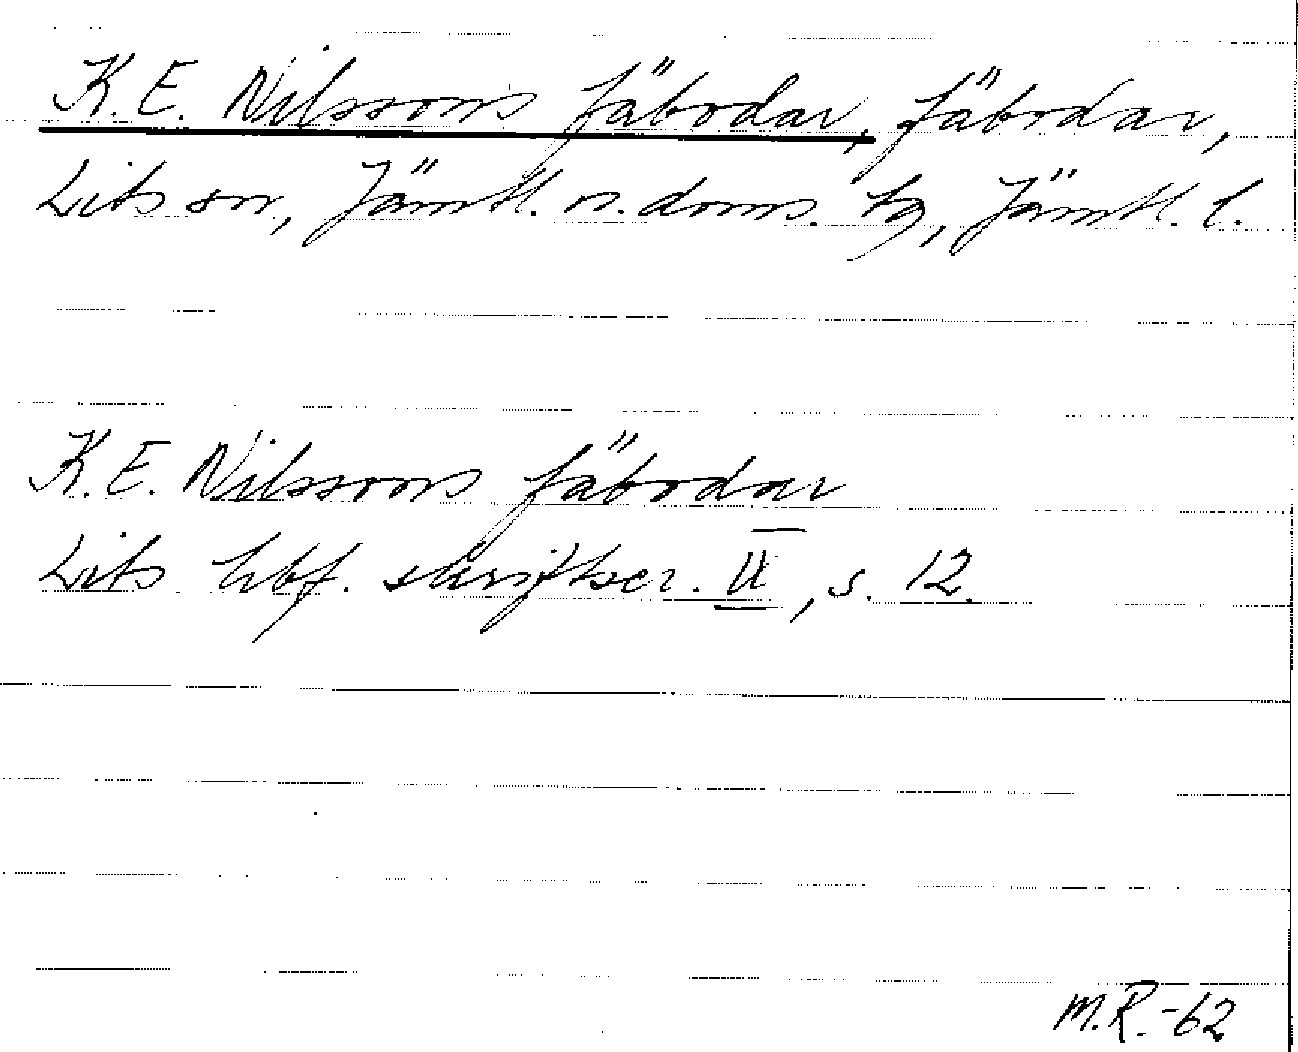 K. E. Nilssons fäbodar, fäbodar,
Lits sn, Jämtl. n. doms. tg, Jämtl. l.
K. E. Nilssons fäbodar
Lits hbf. skriftser. II, s. 12.
M.R.-62